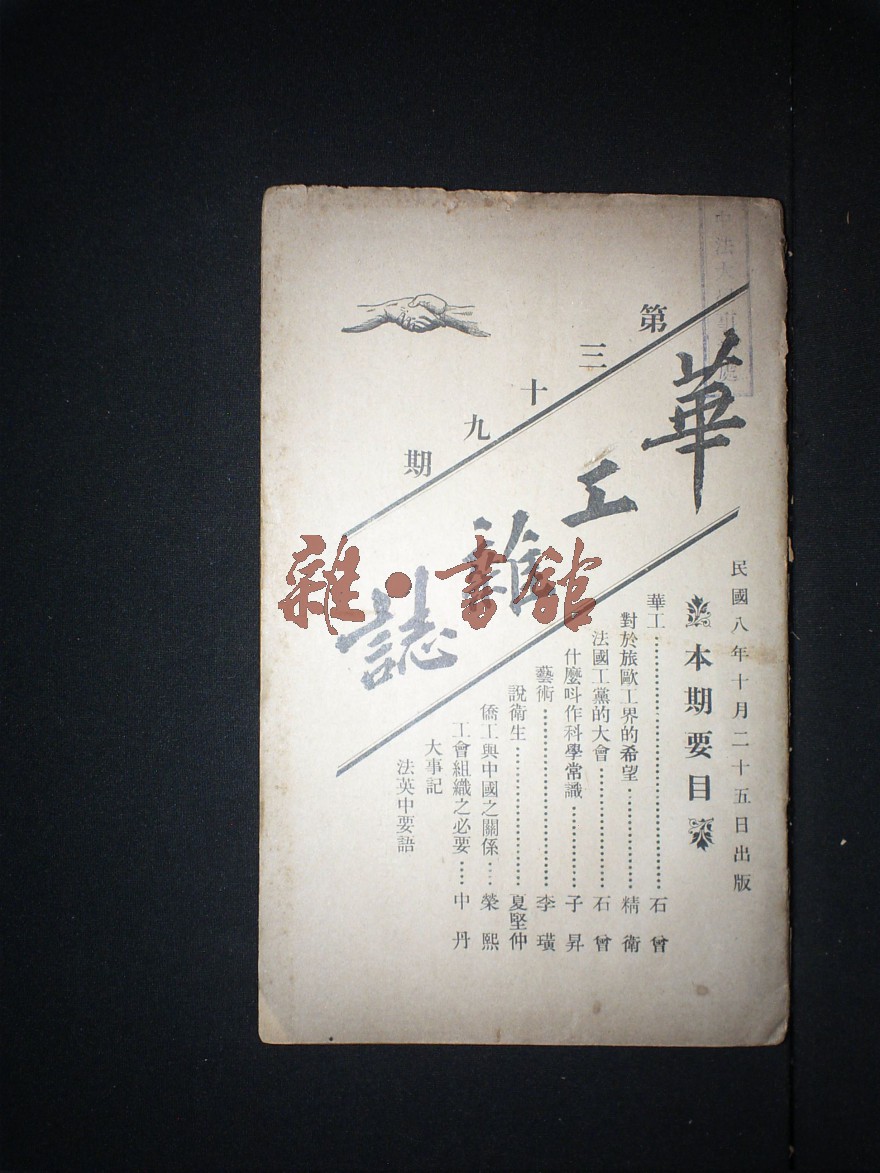 華工雜誌
第三十九期
民國八年十月二十五日出版
本期要目
華工……石曾
對於旅歐工界的希望……精衛
法國工黨的大會……石曾
什麼呌作科學常識……子昇
藝術……李璜
說衛生……夏堅仲
僑工與中國之關係…榮熙
工會組織之必要…中丹
大事記
法英中要語
雜·書館
中法大
處